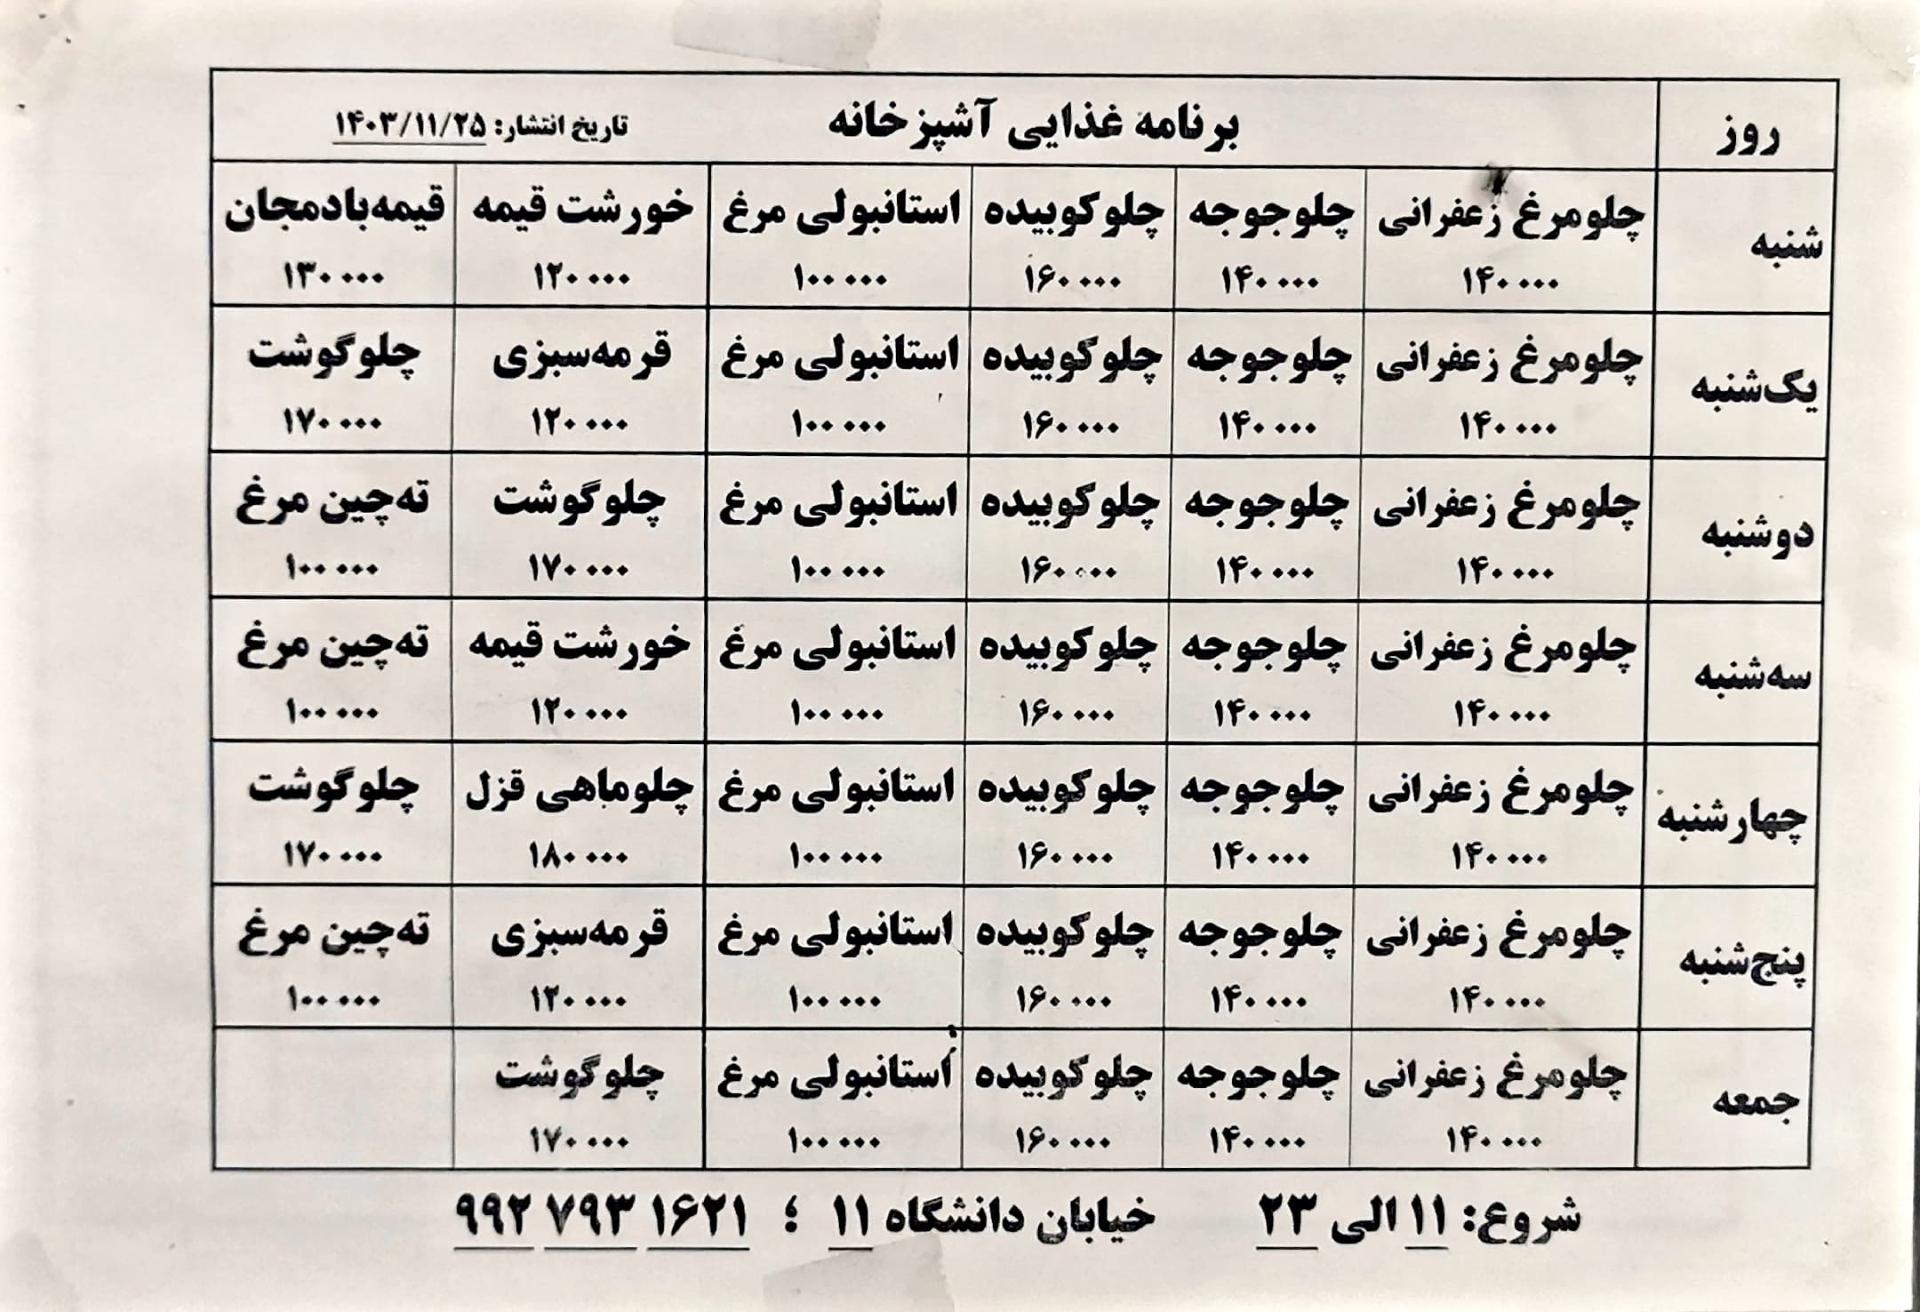 روز برنامه غذایی آشپزخانه تاریخ انتشار: ۱۴۰۳/۱۱/۲۵
شنبه چلومرغ زعفرانی چلوجوجه چلوکوبیده استانبولی مرغ خورشت قیمه قیمه‌بادمجان
۱۴۰۰۰۰ ۱۴۰۰۰۰ ۱۶۰۰۰۰ ۱۰۰۰۰۰ ۱۲۰۰۰۰ ۱۳۰۰۰۰
یک‌شنبه چلومرغ زعفرانی چلوجوجه چلوکوبیده استانبولی مرغ قرمه‌سبزی چلوگوشت
۱۴۰۰۰۰ ۱۴۰۰۰۰ ۱۶۰۰۰۰ ۱۰۰۰۰۰ ۱۲۰۰۰۰ ۱۷۰۰۰۰
دوشنبه چلومرغ زعفرانی چلوجوجه چلوکوبیده استانبولی مرغ چلوگوشت ته‌چین مرغ
۱۴۰۰۰۰ ۱۴۰۰۰۰ ۱۶۰۰۰۰ ۱۰۰۰۰۰ ۱۷۰۰۰۰ ۱۰۰۰۰۰
سه‌شنبه چلومرغ زعفرانی چلوجوجه چلوکوبیده استانبولی مرغ خورشت قیمه ته‌چین مرغ
۱۴۰۰۰۰ ۱۴۰۰۰۰ ۱۶۰۰۰۰ ۱۰۰۰۰۰ ۱۲۰۰۰۰ ۱۰۰۰۰۰
چهارشنبه چلومرغ زعفرانی چلوجوجه چلوکوبیده استانبولی مرغ چلوماهی قزل چلوگوشت
۱۴۰۰۰۰ ۱۴۰۰۰۰ ۱۶۰۰۰۰ ۱۰۰۰۰۰ ۱۸۰۰۰۰ ۱۷۰۰۰۰
پنج‌شنبه چلومرغ زعفرانی چلوجوجه چلوکوبیده استانبولی مرغ قرمه‌سبزی ته‌چین مرغ
۱۴۰۰۰۰ ۱۴۰۰۰۰ ۱۶۰۰۰۰ ۱۰۰۰۰۰ ۱۲۰۰۰۰ ۱۰۰۰۰۰
جمعه چلومرغ زعفرانی چلوجوجه چلوکوبیده استانبولی مرغ چلوگوشت
۱۴۰۰۰۰ ۱۴۰۰۰۰ ۱۶۰۰۰۰ ۱۰۰۰۰۰ ۱۷۰۰۰۰
شروع: ۱۱ الی ۲۳ خیابان دانشگاه ۱۱ ؛ ۹۹۲ ۷۹۳ ۱۶۲۱